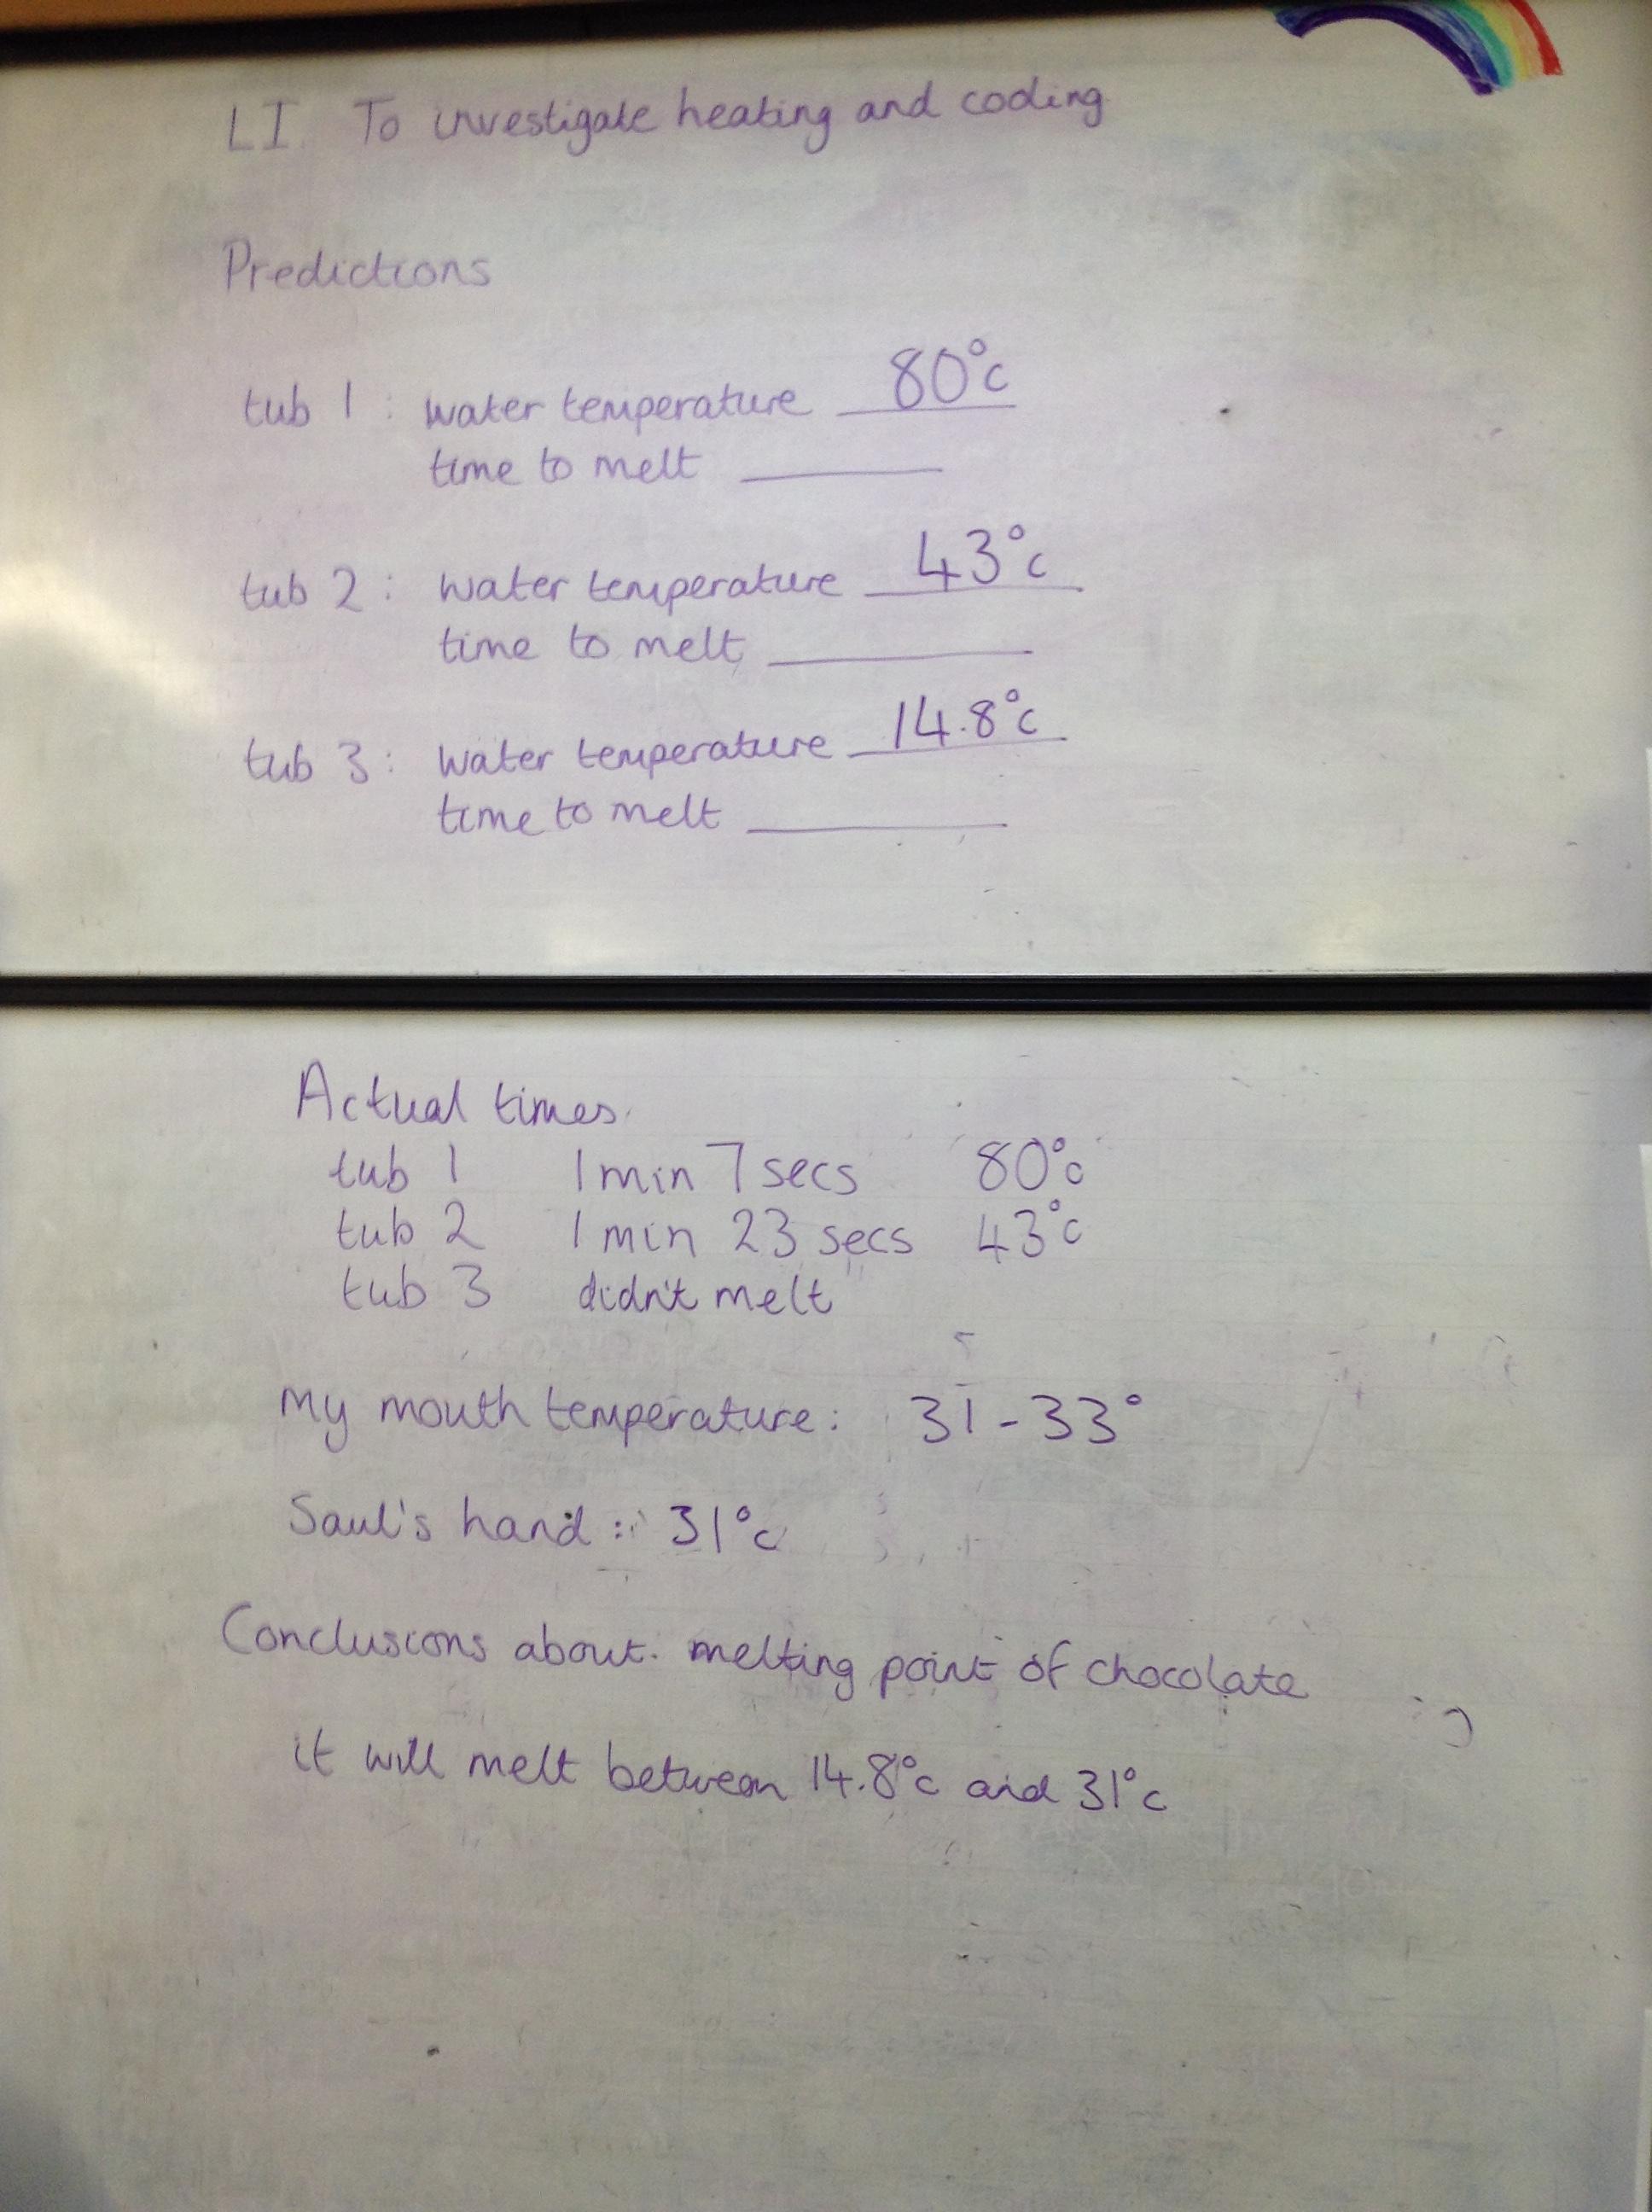 LI. To investigate heating and cooling
Predictions
tub 1 : water temperature 80°c
time to melt ______
tub 2 : water temperature 43°c
time to melt ______
tub 3 : water temperature 14.8°c
time to melt ______
Actual times.
tub 1 1 min 7 secs 80°c
tub 2 1 min 23 secs 43°c
tub 3 didn't melt
My mouth temperature : 31 - 33°
Saul's hand : 31°c
Conclusions about melting point of chocolate
it will melt between 14.8°c and 31°c